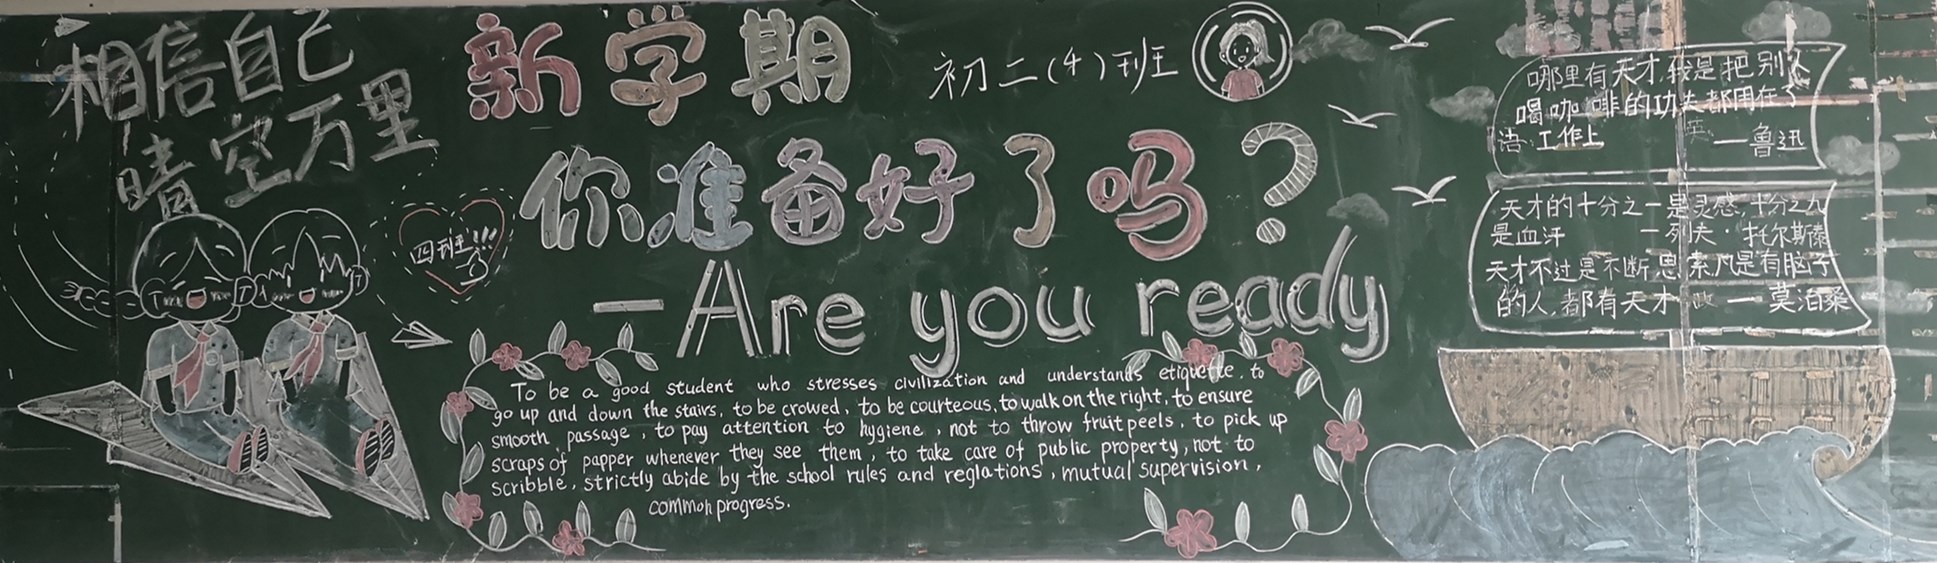 相信自己
晴空万里
四班!!!
新学期
初二(4)班
你准备好了吗?
-Are you ready
To be a good student who stresses civilization and understands etiquette, to
go up and down the stairs, to be crowed, to be courteous, to walk on the right, to ensure
smooth passage, to pay attention to hygiene, not to throw fruit peels, to pick up
scraps of papper whenever they see them, to take care of public property, not to
scribble, strictly abide by the school rules and reglations, mutual supervision,
common progress.
哪里有天才,我是把别人
喝咖啡的功夫都用在了
工作上 —鲁迅
天才的十分之一是灵感,十分之九
是血汗 —列夫·托尔斯泰
天才不过是不断思索,凡是有脑子
的人,都有天才 —莫泊桑